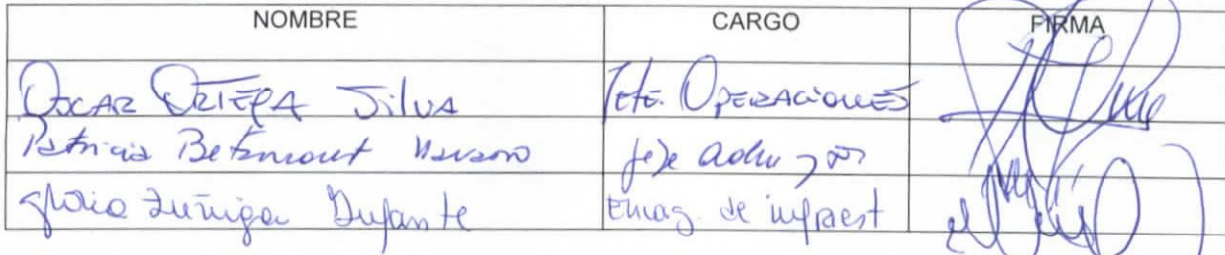 NOMBRE CARGO FIRMA
OSCAR ORTEGA SILVA Jefe. OPERACIONES
Patricia Betancourt Navarro Jefe adm
Gloria Zuñiga Dufante Encag. de infraest